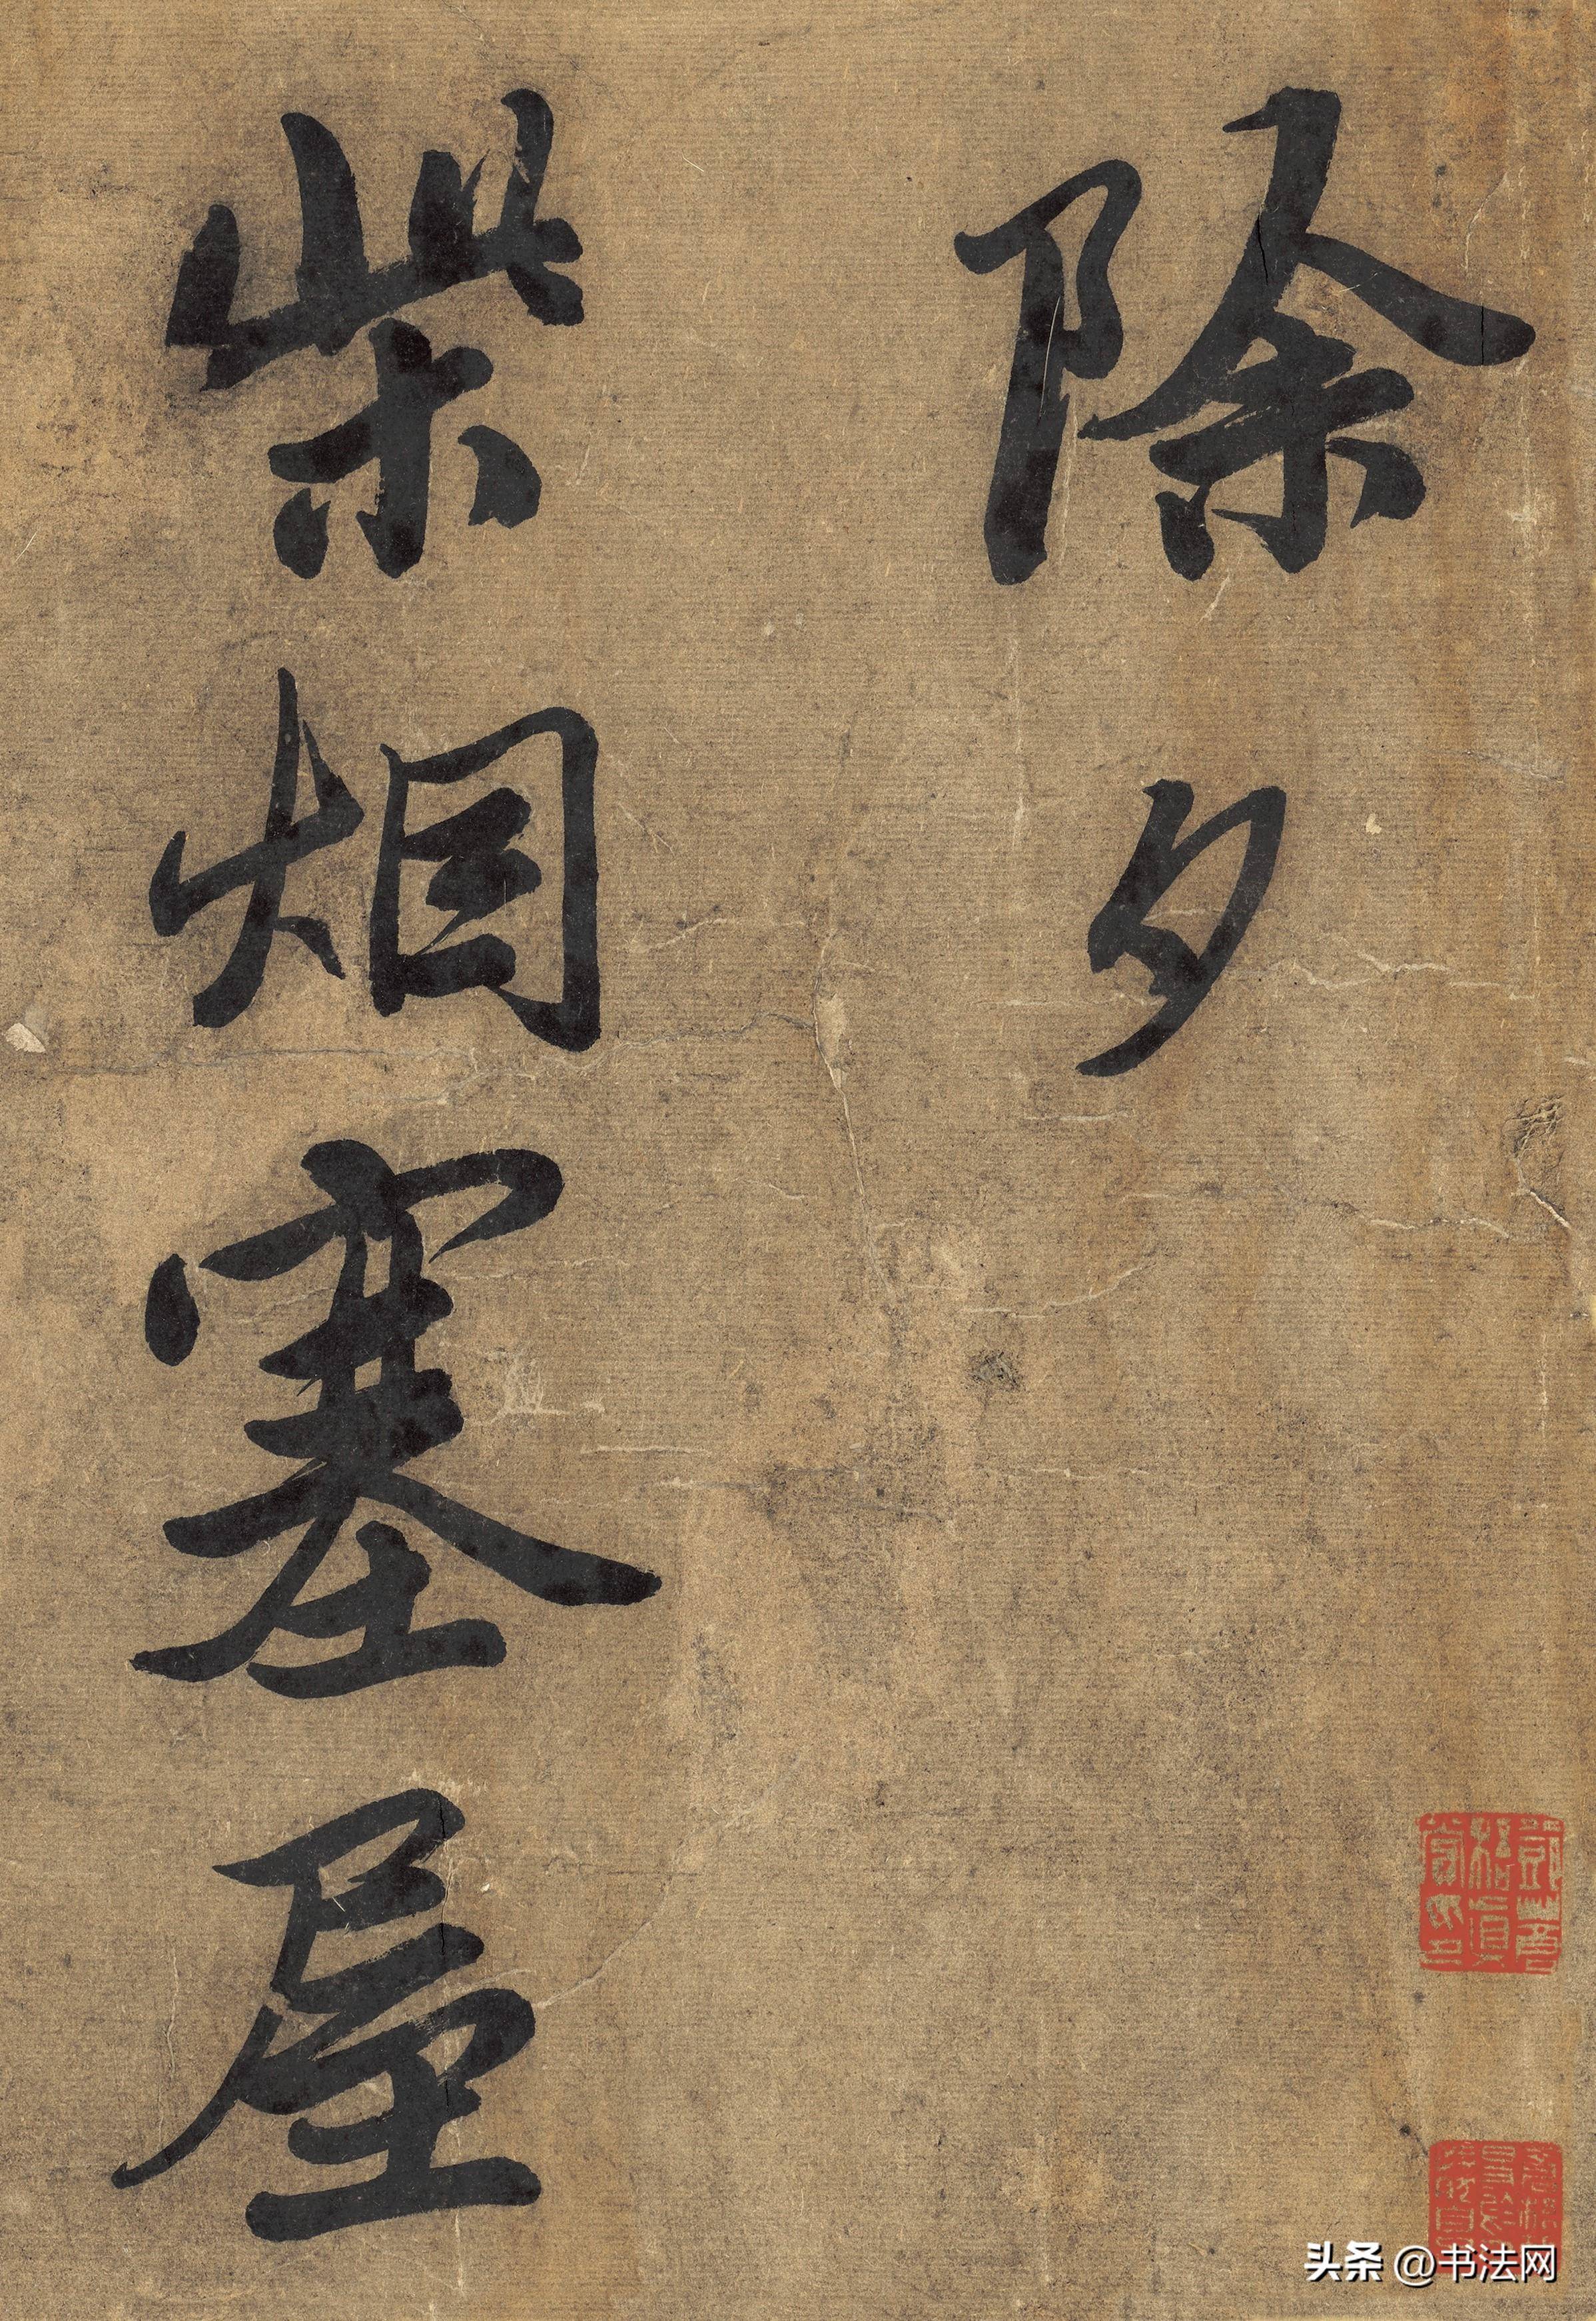 除夕
柴烟塞屋
头条 @书法网